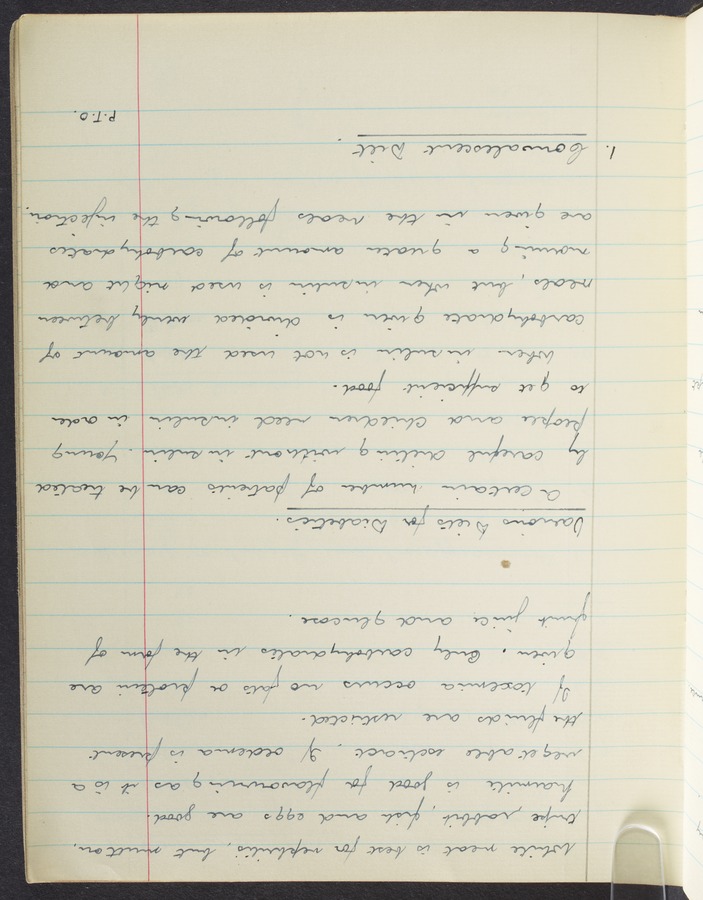 White meat is best for nephritis, but mutton,
tripe, rabbit, fish and eggs are good.
Marmite is good for flavouring as it is a
vegetable extract. If oedema is present
the fluids are restricted.
If toxemia occurs no fats or protein are
given. Only carbohydrates in the form of
fruit juice and glucose.
Various Diets for Diabetics.
A certain number of patients can be treated
by careful dieting without insulin. Young
people and children need insulin in order
to get sufficient food.
When insulin is not used the amount of
carbohydrate given is divided evenly between
meals, but when insulin is used night and
morning a greater amount of carbohydrates
are given in the meals following the injection.
1. Convalescent Diet.
P.T.O.